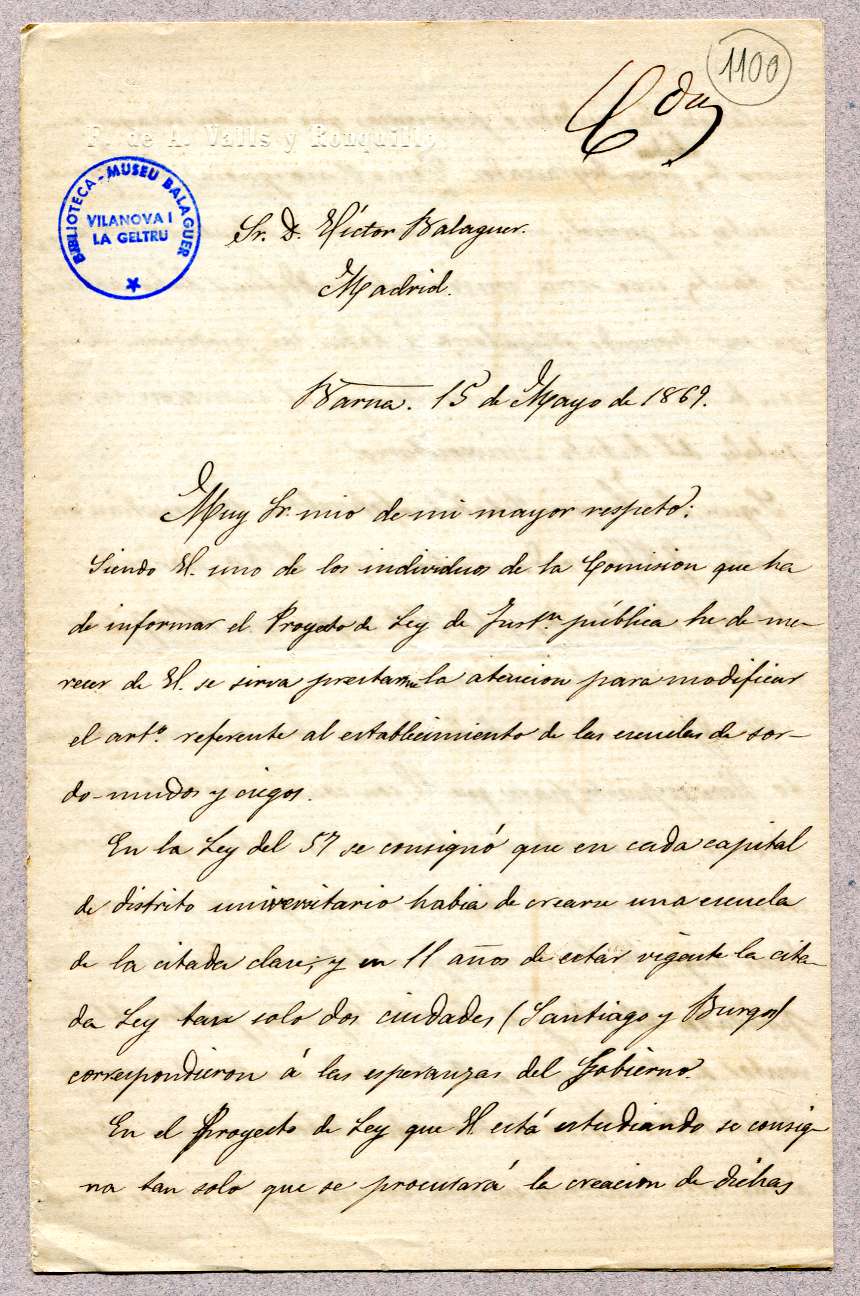 1100
Cda
F. de A. Valls y Ronquillo
BIBLIOTECA - MUSEU BALAGUER
VILANOVA I
LA GELTRU
Sr. D. Víctor Balaguer.
Madrid.
Barna. 15 de Mayo de 1869.
Muy Sr. mio de mi mayor respeto:
Siendo V. uno de los individuos de la Comision que ha
de informar el Proyecto de Ley de Instn pública he de me-
recer de V. se sirva prestarme la atencion para modificar
el arto. referente al establecimiento de las escuelas de sor-
do-mudos y ciegos.
En la Ley del 57 se consignó que en cada capital
de distrito universitario habia de crearse una escuela
de la citada clase; y en 11 años de estar vigente la cita-
da Ley tan solo dos ciudades (Santiago y Burgos)
correspondieron á las esperanzas del Gobierno.
En el Proyecto de Ley que V. está estudiando se consig-
na tan solo que se procurará la creacion de dichas